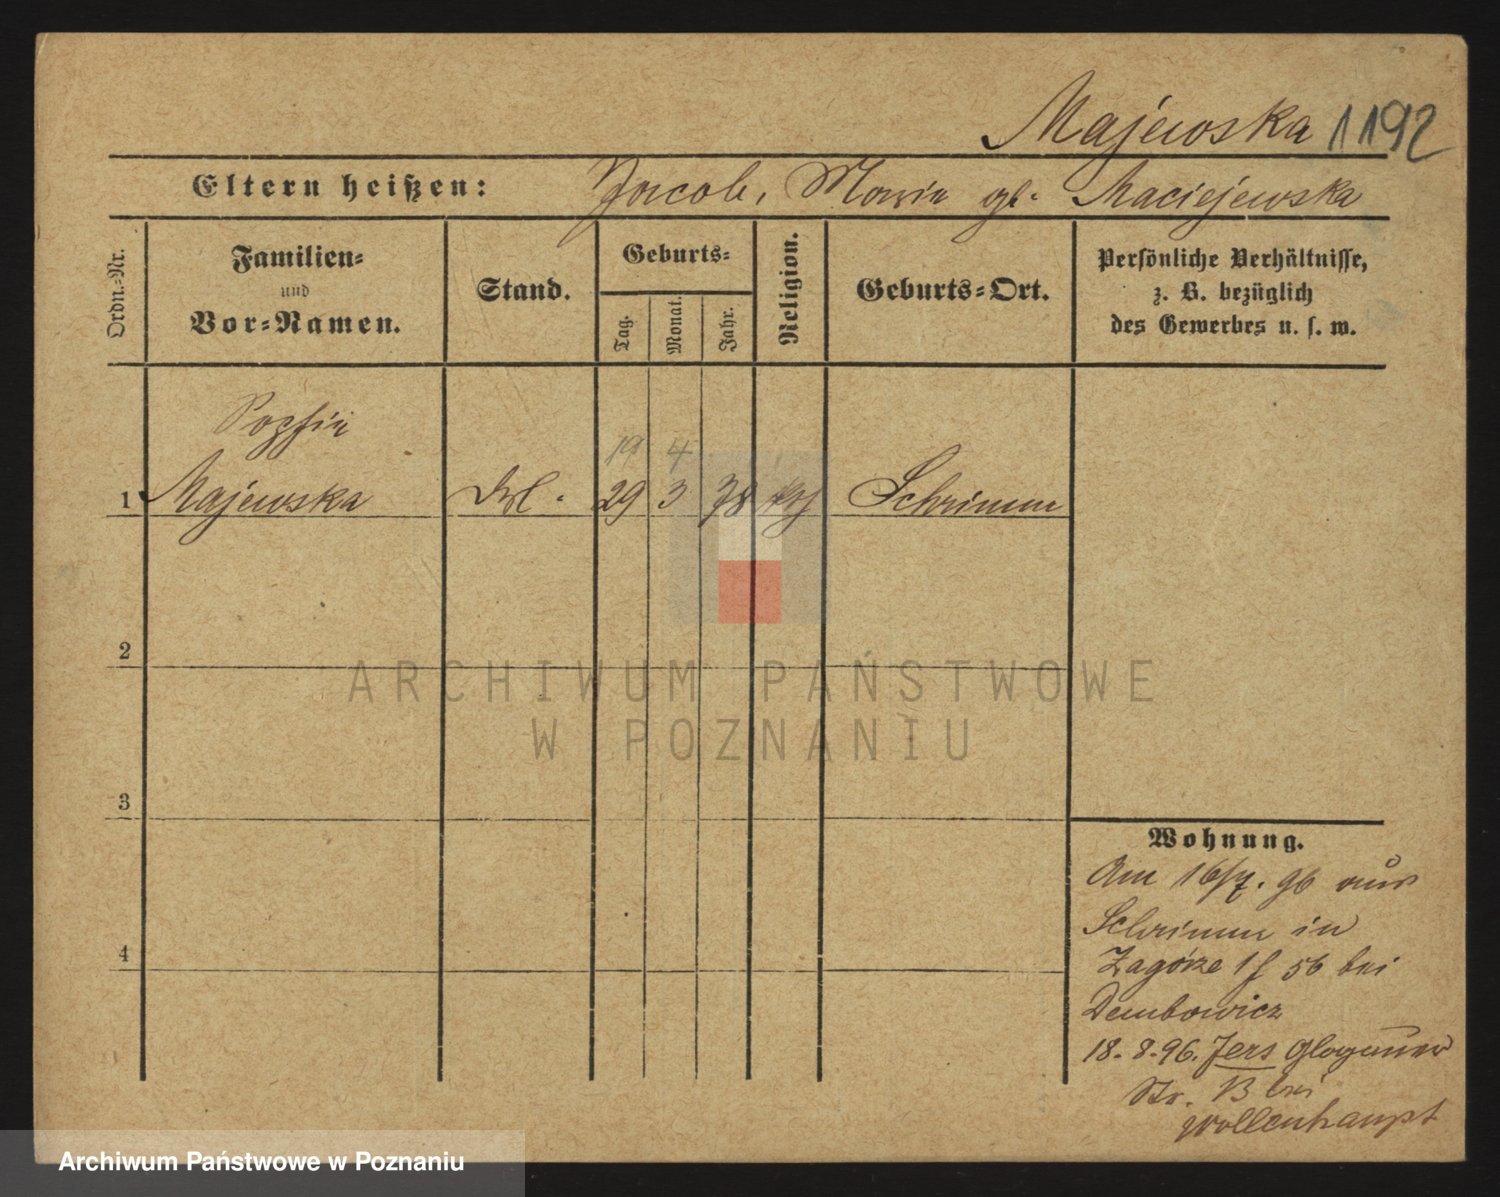 Majewska 1192
Eltern heißen: Jacob, Marie gb. Maciejewska
Ordn.-Nr.
Familien-
und
Vor-Namen.
Stand.
Geburts-
Tag.
Monat.
Jahr.
Religion.
Geburts-Ort.
Persönliche Verhältnisse,
z. B. bezüglich
des Gewerbes u. s. w.
Sophie
19 4
1 Majewska 29 3 78 kth Schrimm
2
3
4
Wohnung.
Am 16/7. 96 aus
Schrimm in
Zagórze 56 bei
Dembowicz
18. 8. 96. Jers Glogauer
Str. bei
Wollenhaupt
ARCHIWUM PAŃSTWOWE
W POZNANIU
Archiwum Państwowe w Poznaniu